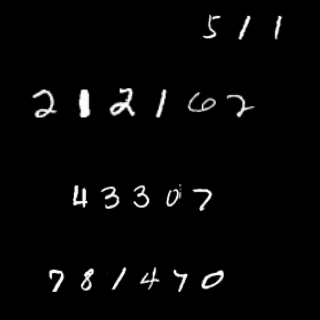 511
212162
43307
781470